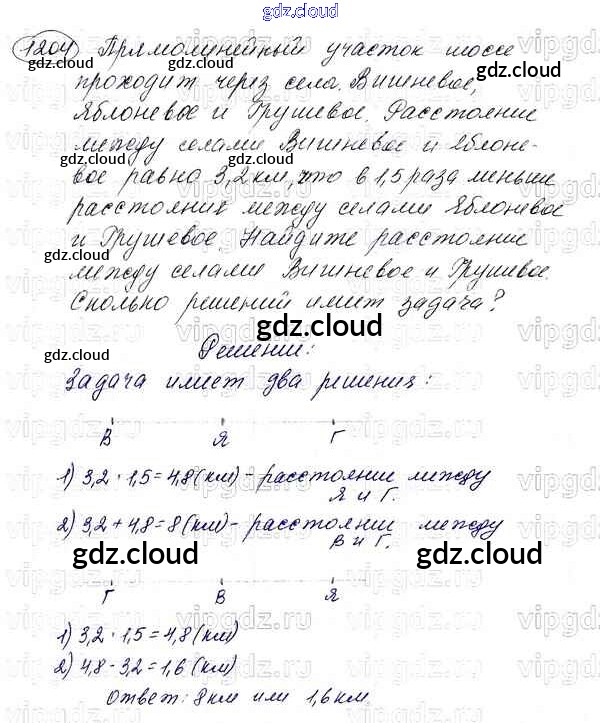 gdz.cloud
1204 Прямолинейный участок шоссе
проходит через села Вишневое,
Яблоневое и Грушевое. Расстояние
между селами Вишневое и Яблоне-
вое равно 3,2 км, что в 1,5 раза меньше
расстояния между селами Яблоневое
и Грушевое. Найдите расстояние
между селами Вишневое и Грушевое.
Сколько решений имеет задача?
Решение:
Задача имеет два решения:
В Я Г
1) 3,2 · 1,5 = 4,8 (км) - расстояние между
Я и Г.
2) 3,2 + 4,8 = 8 (км) - расстояние между
В и Г.
Г В Я
1) 3,2 · 1,5 = 4,8 (км)
2) 4,8 - 3,2 = 1,6 (км)
Ответ: 8 км или 1,6 км.
gdz.cloud
gdz.cloud
gdz.cloud
gdz.cloud
gdz.cloud
gdz.cloud
gdz.cloud
gdz.cloud
gdz.cloud